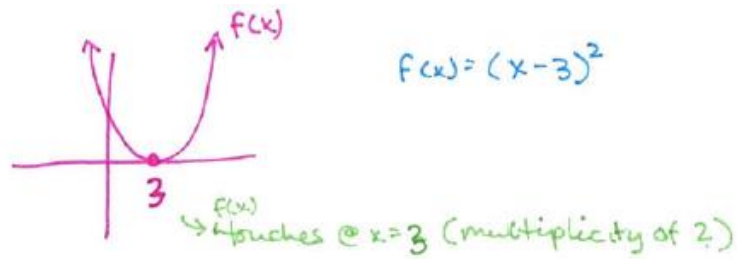 f(x)
f(x) = (x-3)²
3
f(x)
↳ touches @ x=3 (multiplicity of 2)